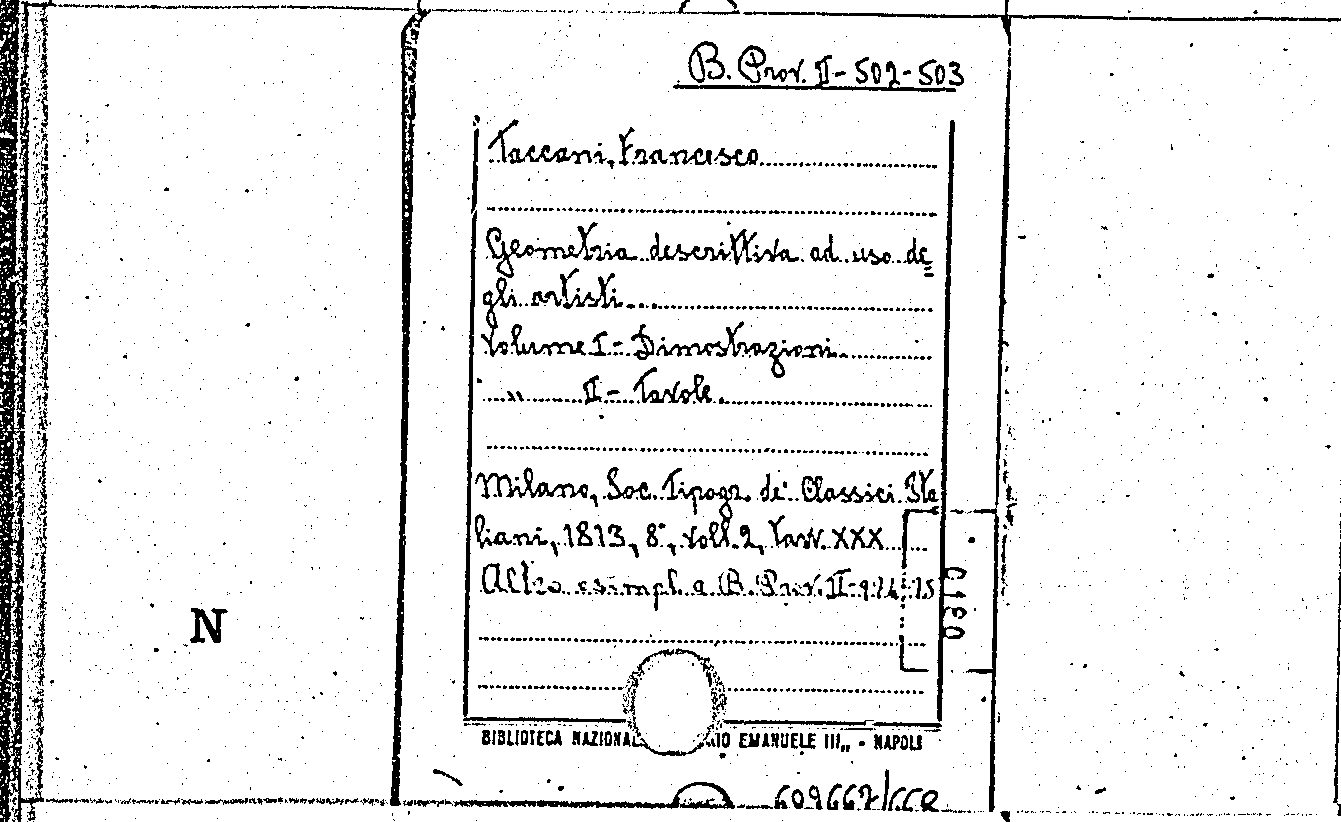 B. Prov. II-502-503
Taccani, Francesco
Geometria descrittiva ad uso de=
gli artisti...
Volume I - Dimostrazioni
" II - Tavole.
Milano, Soc. Tipogr. de' Classici Ita
liani, 1813, 8°, voll. 2, tavv. XXX
Altro esempl. a B. Prov. II-974-75
N
BIBLIOTECA NAZIONAL IO EMANUELE III„ - NAPOLI